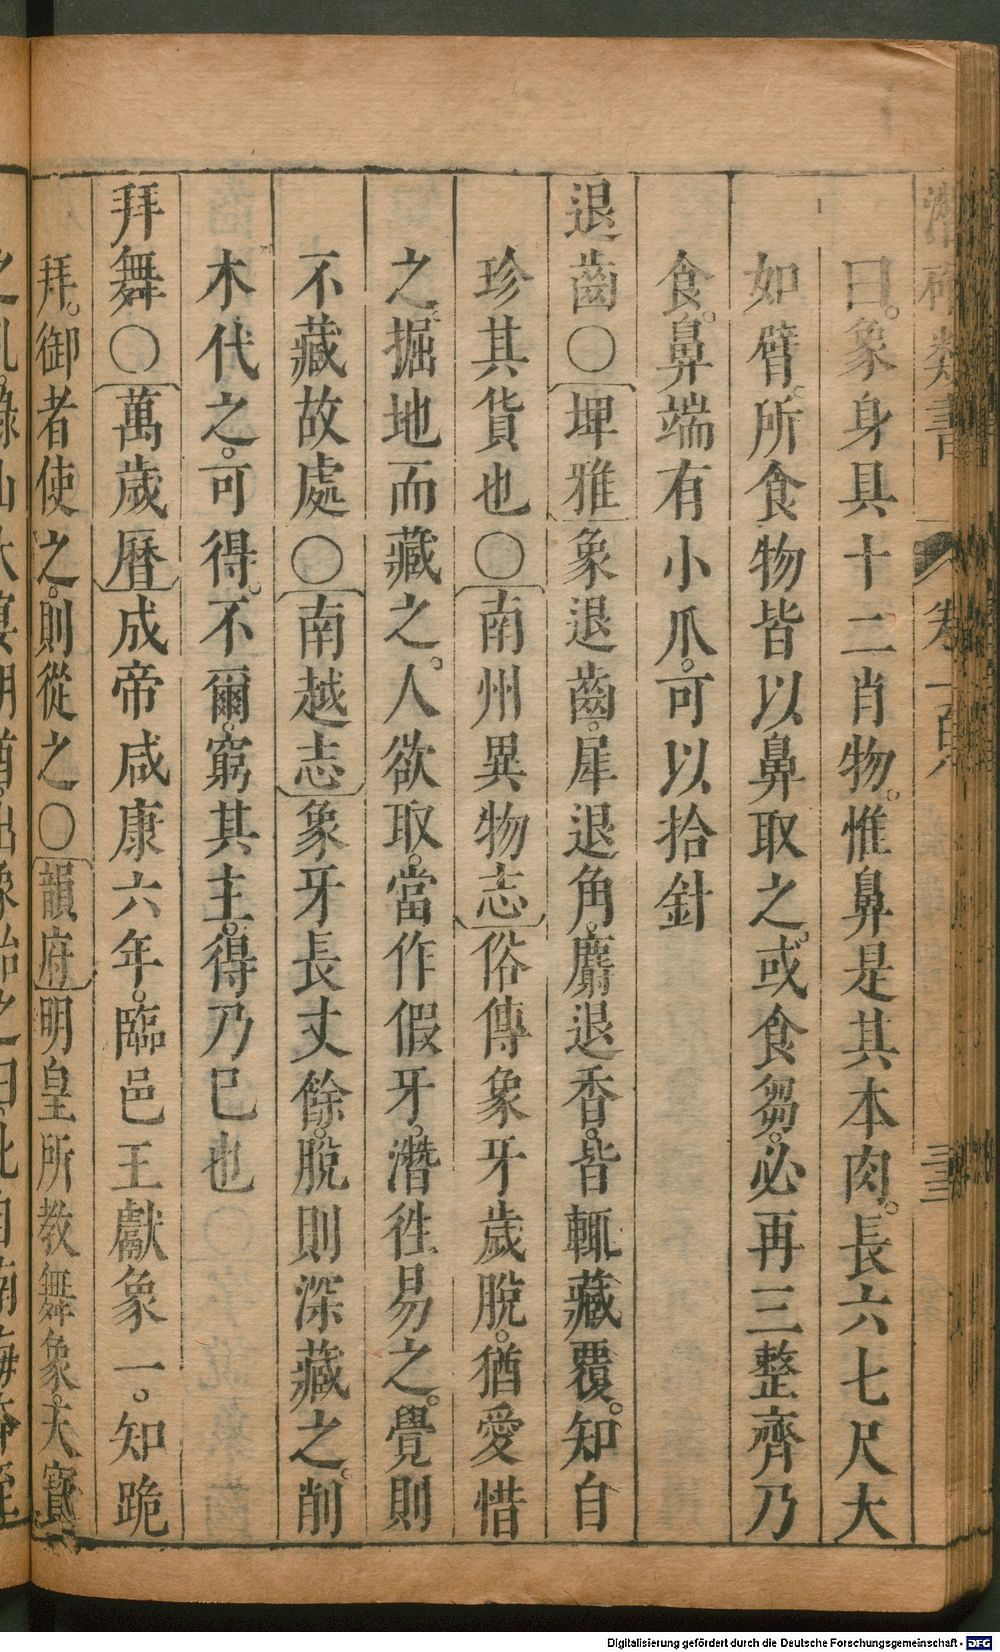 潛確類書 卷一百八 三三
曰。象身具十二肖物。惟鼻是其本肉。長六七尺大
如臂。所食物皆以鼻取之。或食芻。必再三整齊乃
食。鼻端有小爪。可以拾針
退齒〇埤雅象退齒。犀退角。麝退香。皆輒藏覆。知自
珍其貨也〇南州異物志俗傳象牙歲脫。猶愛惜
之。掘地而藏之。人欲取。當作假牙。潛徃易之。覺則
不藏故處〇南越志象牙長丈餘。脫則深藏之。削
木代之。可得。不爾。窮其主。得乃巳也
拜舞〇萬歲曆成帝咸康六年。臨邑王獻象一。知跪
拜。御者使之。則從之〇韻府明皇所教舞象。天寶
之亂。祿山大宴
象紿之曰。此自南海奔至
Digitalisierung gefördert durch die Deutsche Forschungsgemeinschaft - DFG